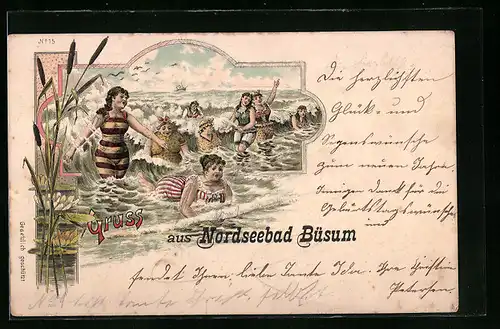 No 15
Gruss
aus Nordseebad Büsum
Gesetzlich geschützt
Die herzlichsten
Glück- und
Segenswünsche
zum neuen Jahre.
Innigen Dank für die
Geburtstagswünsche
und
sendet Ihnen, liebe Tante Ida. Ihre Christine
Petersen